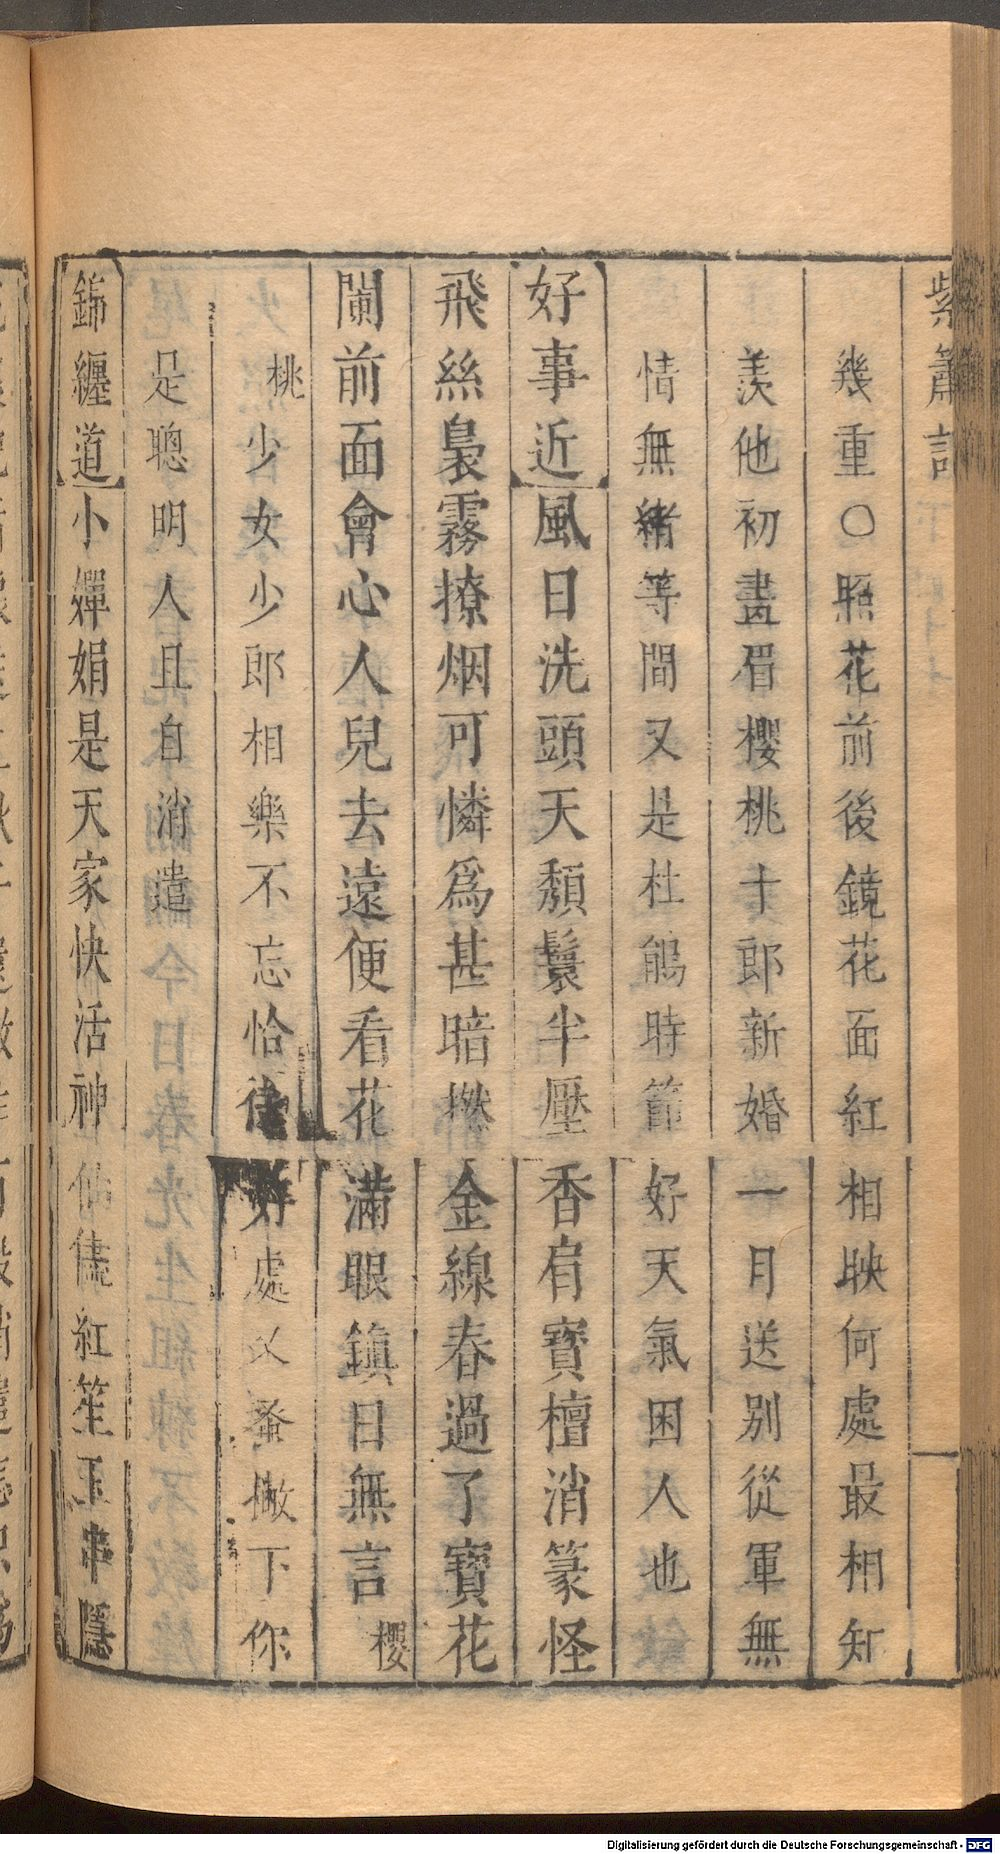 紫簫記
幾重○照花前後鏡花面紅相映何處最相知
羡他初畫眉櫻桃十郎新婚一月送別從軍無
情無緒等間又是杜鵑時節好天氣困人也
好事近風日洗頭天頹鬟半壓香肩寶檀消篆怪
飛絲裊霧撩烟可憐爲甚暗撚金線春過了寶花
闌前面會心人兒去遠便看花滿眼鎮日無言櫻
桃少女少郎相樂不忘恰待好處又蚤撇下你
是聰明人且自消遣
錦纏道小嬋娟是天家快活神仙儔紅笙玉串隱
Digitalisierung gefördert durch die Deutsche Forschungsgemeinschaft - DFG